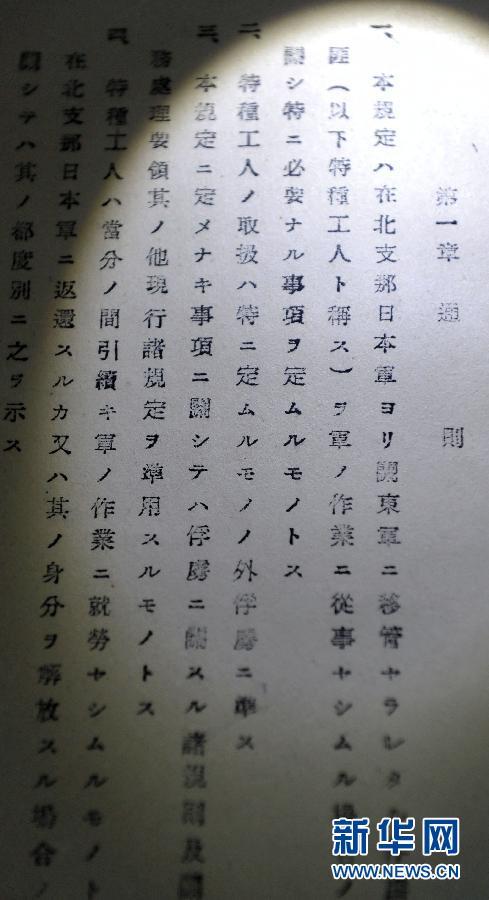 第一章 通則
一、本規定ハ在北支那日本軍ヨリ關東軍ニ移管セラレタ
匪(以下特種工人ト稱ス)ヲ軍ノ作業ニ從事セシムル ノ
關シ特ニ必要ナル事項ヲ定ムルモノトス
二、特種工人ノ取扱ハ特ニ定ムルモノノ外俘虜ニ準ス
三、本規定ニ定メナキ事項ニ關シテハ俘虜ニ關スル諸規則及
務處理要領其ノ他現行諸規定ヲ準用スルモノトス
四、特種工人ハ當分ノ間引續キ軍ノ作業ニ就勞セシムルモノト
在北支那日本軍ニ返還スルカ又ハ其ノ身分ヲ解放スル場合ノ
關シテハ其ノ都度別ニ之ヲ示ス
新华网
NEWS